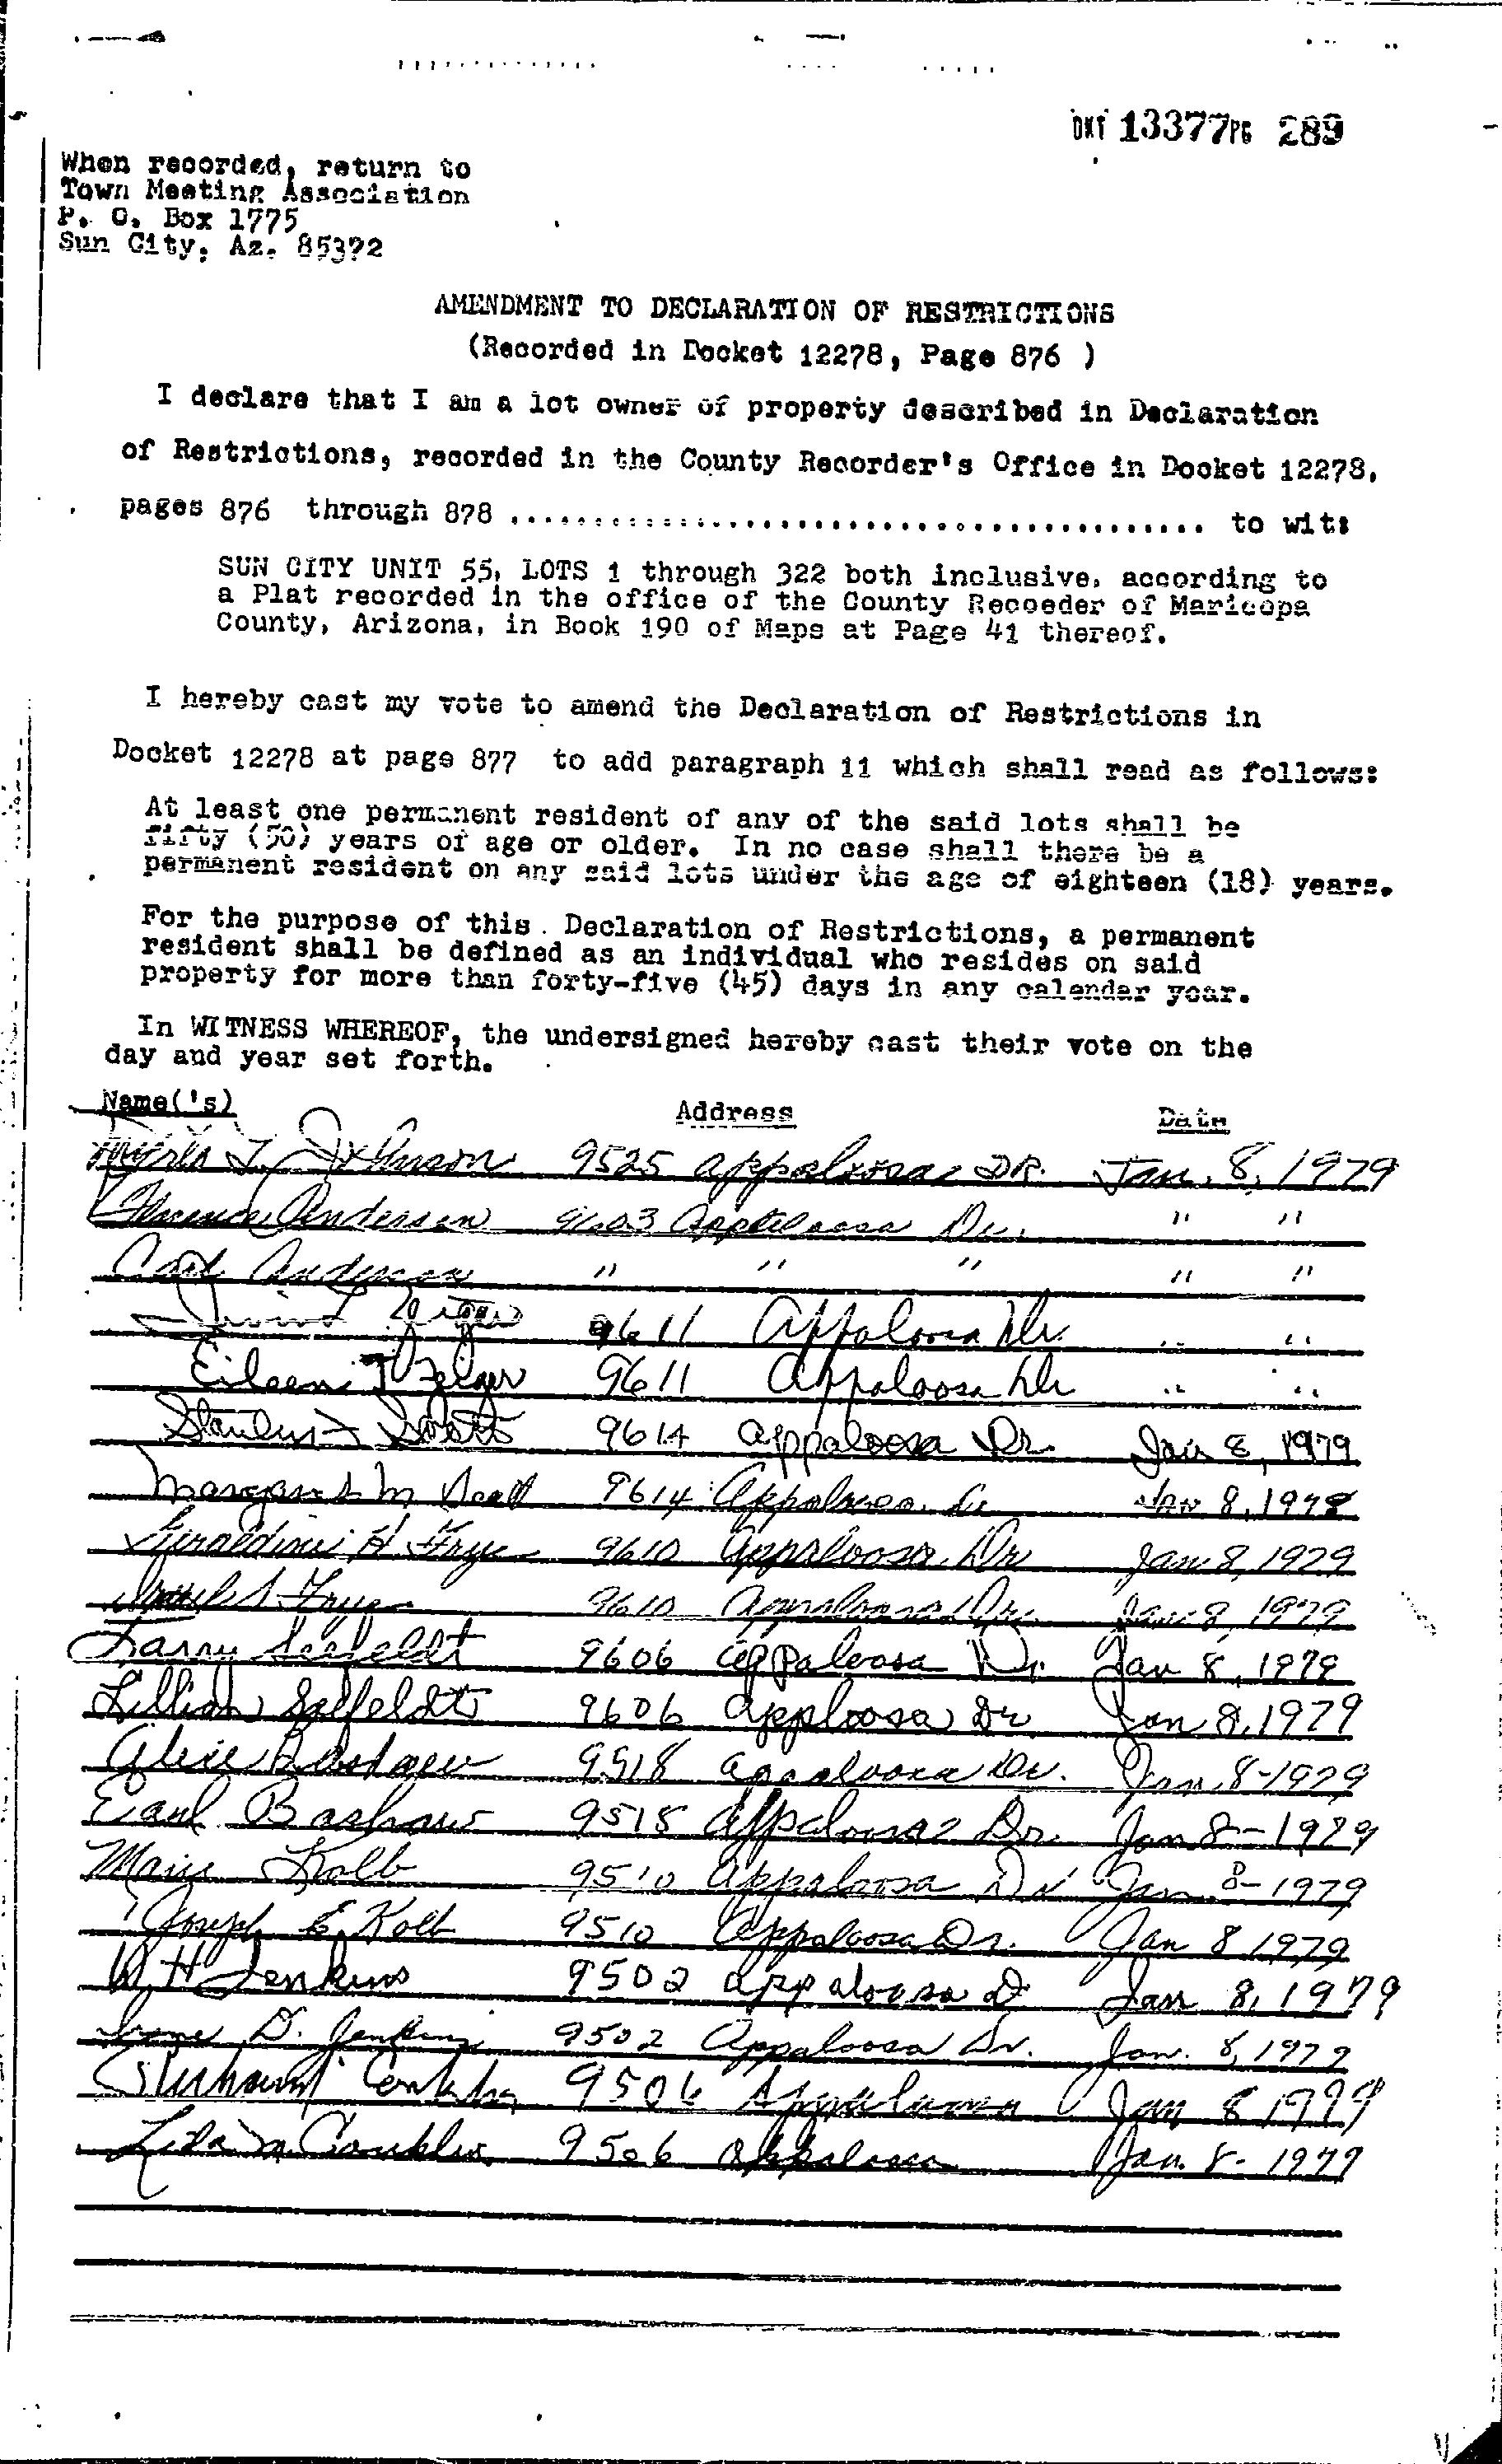 DKT 13377 PG 289
When recorded, return to
Town Meeting Association
P. O. Box 1775
Sun City, Az. 85372
AMENDMENT TO DECLARATION OF RESTRICTIONS
(Recorded in Docket 12278, Page 876 )
I declare that I am a lot owner of property described in Declaration
of Restrictions, recorded in the County Recorder's Office in Docket 12278,
pages 876 through 878 .................................................. to wit:
SUN CITY UNIT 55, LOTS 1 through 322 both inclusive, according to
a Plat recorded in the office of the County Recoeder of Maricopa
County, Arizona, in Book 190 of Maps at Page 41 thereof.
I hereby cast my vote to amend the Declaration of Restrictions in
Docket 12278 at page 877 to add paragraph 11 which shall read as follows:
At least one permanent resident of any of the said lots shall be
fifty (50) years of age or older. In no case shall there be a
permanent resident on any said lots under the age of eighteen (18) years.
For the purpose of this Declaration of Restrictions, a permanent
resident shall be defined as an individual who resides on said
property for more than forty-five (45) days in any calendar year.
In WITNESS WHEREOF, the undersigned hereby cast their vote on the
day and year set forth.
Name('s) Address Date
9525 Appaloosa DR. Jan. 8, 1979
Anderson 9603 Appaloosa Dr. " "
Carl Anderson " " " " "
9611 Appaloosa Dr. " "
Eileen J 9611 Appaloosa Dr " "
9614 Appaloosa Dr. Jan 8, 1979
Margaret M 9614 Appaloosa Dr Jan 8, 1979
Geraldine H. Frye 9610 Appaloosa Dr Jan 8, 1979
Frye 9610 Appaloosa Dr. Jan 8, 1979
Larry Seefeldt 9606 Appaloosa Dr. Jan 8, 1979
Lillian Seefeldt 9606 Apploosa Dr Jan 8, 1979
Alice Bashaw 9518 Appaloosa Dr. Jan. 8-1979
Earl Bashaw 9518 Appaloosa Dr. Jan 8-1979
Marie Kolb 9510 Appaloosa Dr Jan. 8-1979
Joseph E. Kolb 9510 Appaloosa Dr. Jan 8 1979
W H Jenkins 9502 Appaloosa D Jan 8, 1979
Irene D. Jenkins 9502 Appaloosa Dr. Jan. 8, 1979
9506 Appaloosa Jan 8 1979
9506 Appaloosa Jan. 8-1979